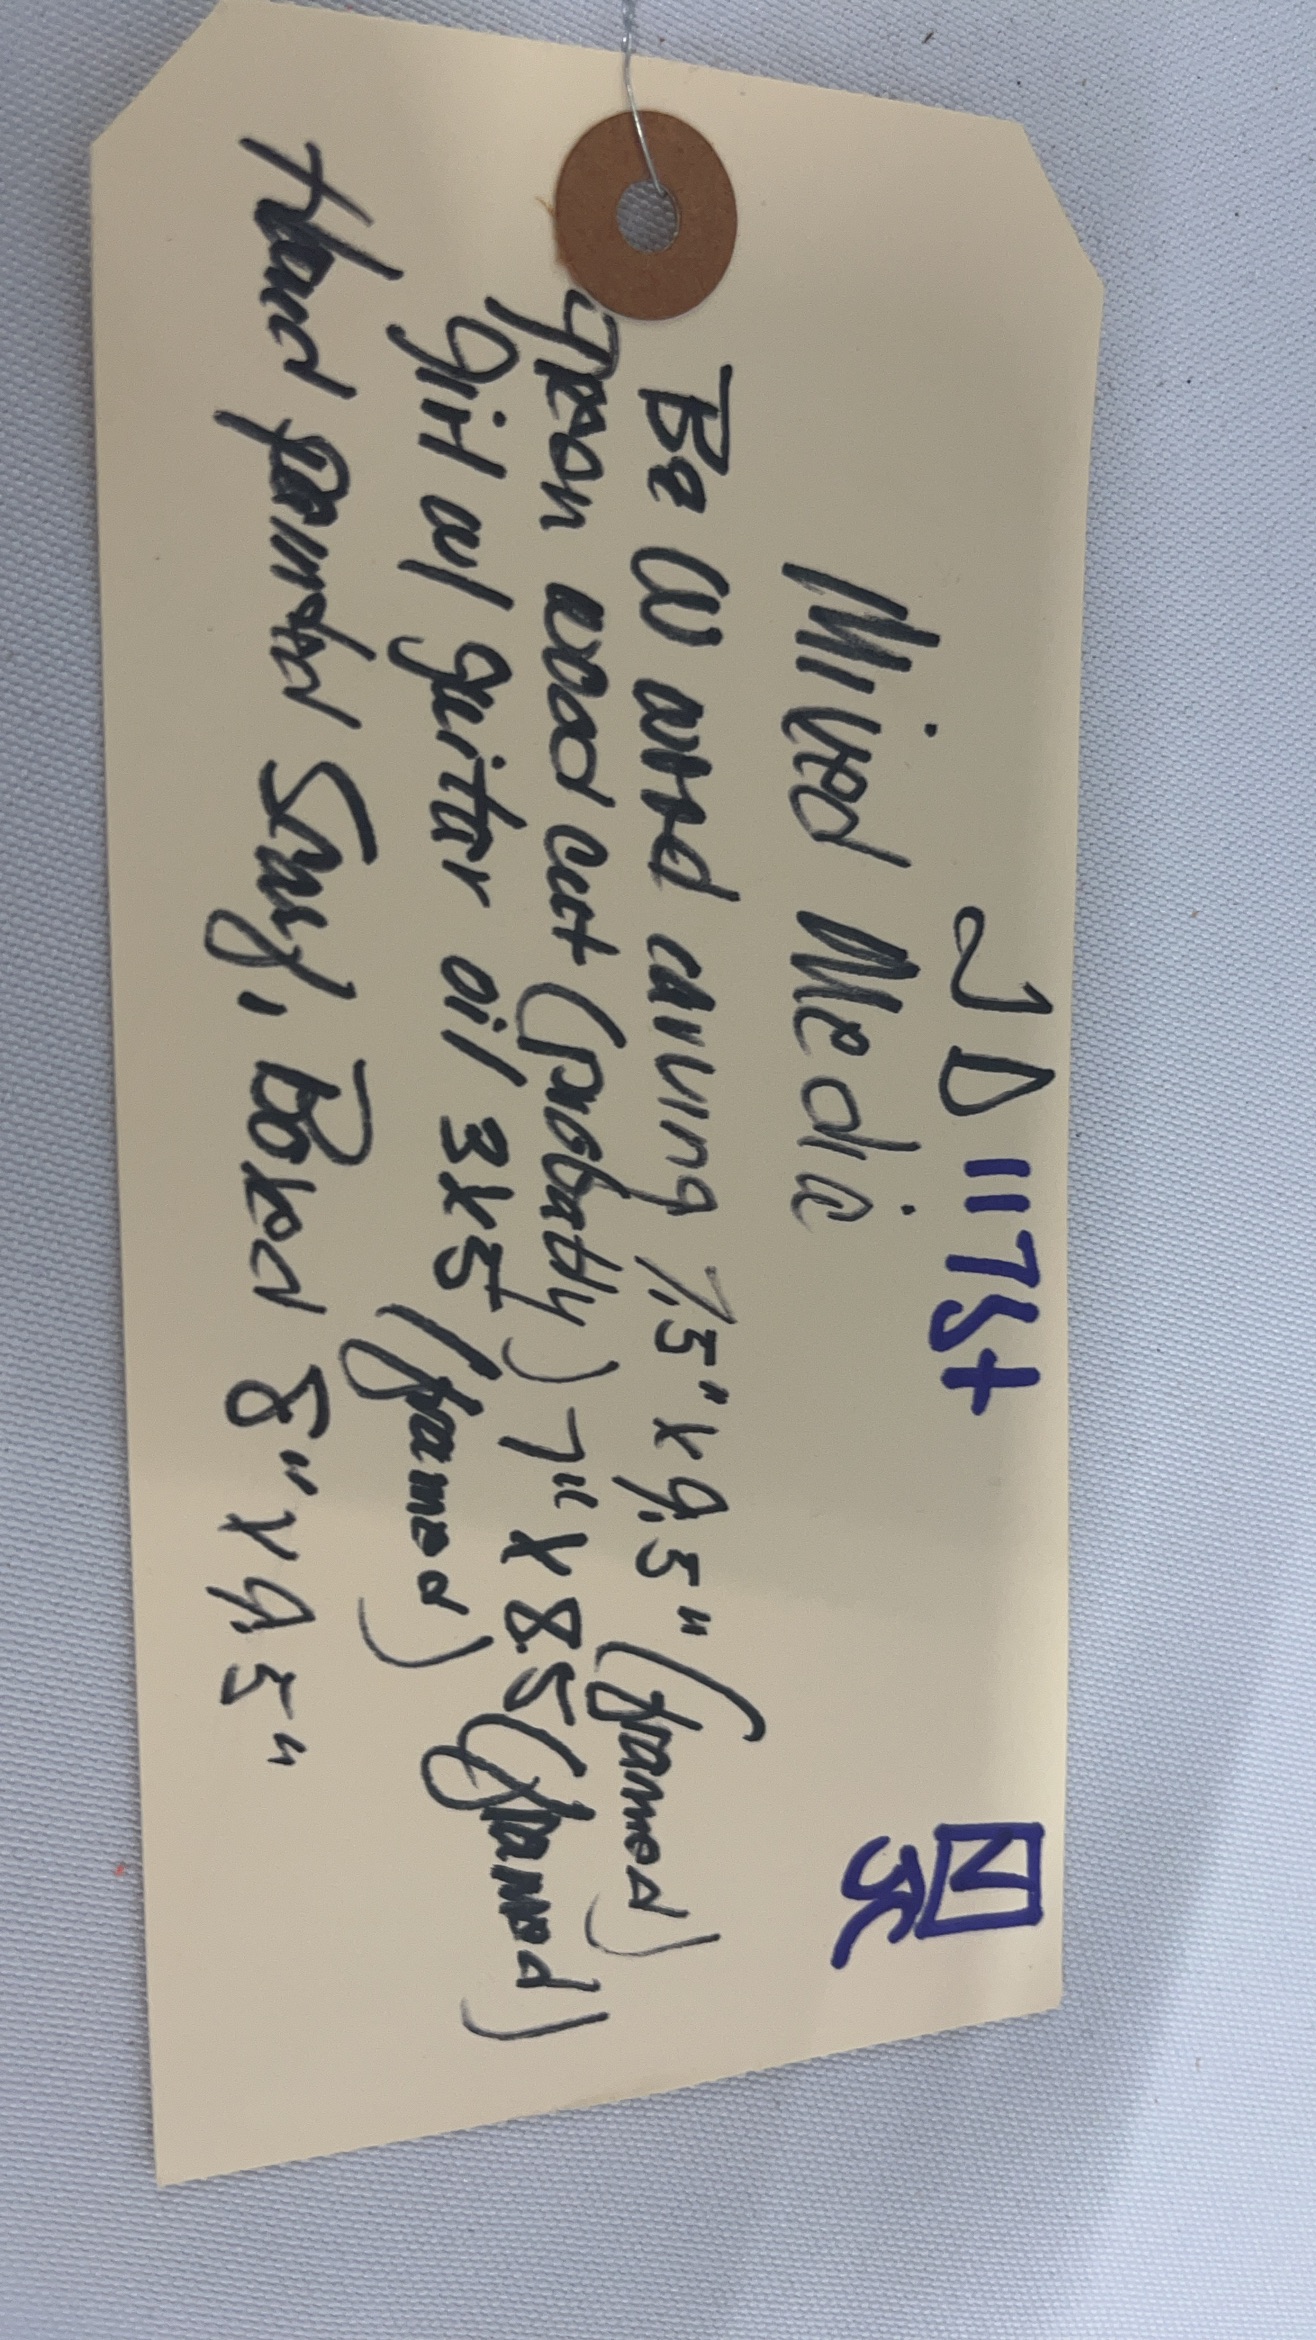 JD 117St
N
JC
Mixed Media
B&W wood carving 7.5" x 9.5" (framed)
wood cut (probably) 7" x 8.5 (framed)
Girl w/ guitar oil 3x5 (framed)
Hand painted Boxed 8" x 9.5"